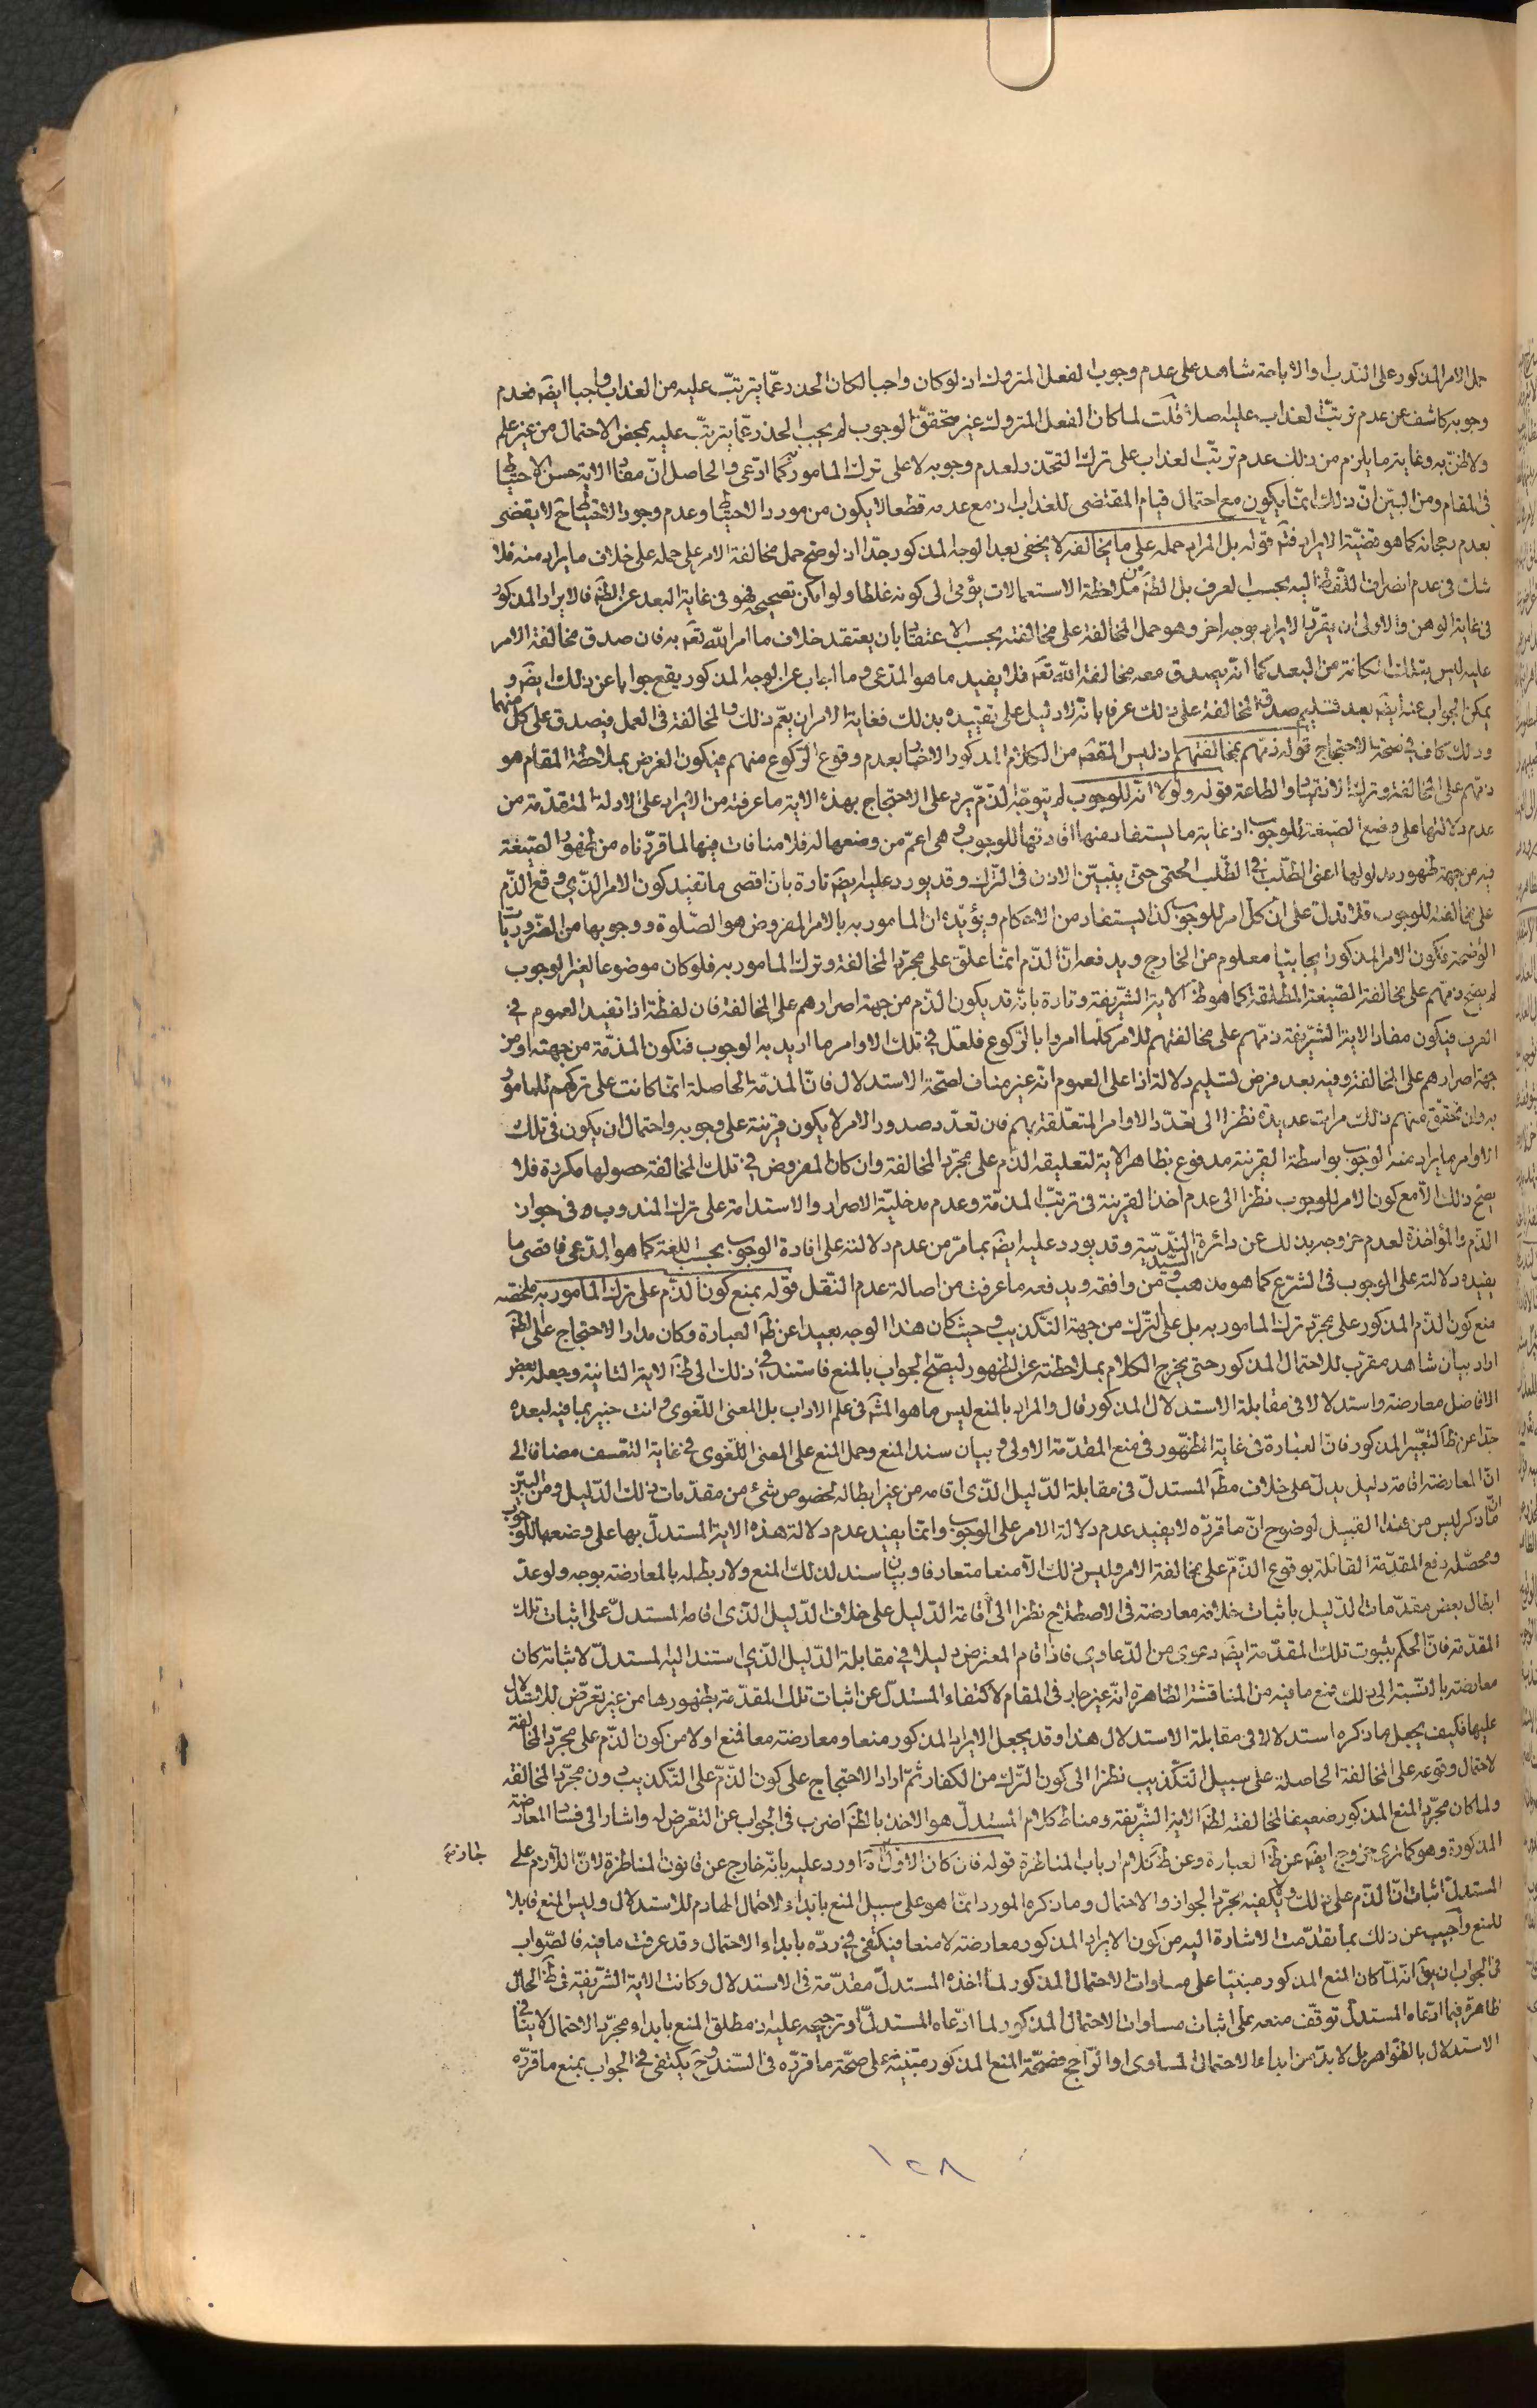 حمل الامر المذكور على الندب او الاباحة شاهد على عدم وجوب الفعل المتروك اذ لو كان واجبا لكان الحذر عمّا يترتّب عليه من العذاب واجبا ايضَ فعدم
وجوبه كاشف عن عدم ترتّب العذاب عليه اصلا قلت لما كان الفعل المتروك غير متحقق الوجوب لم يجب الحذر عمّا يترتّب عليه بمحض الاحتمال من غير علم
ولا ظنّ به وغاية ما يلزم من ذلك عدم ترتّب العذاب على ترك التحذّر لعدم وجوبه لا على ترك المامور به كما ادّعى والحاصل انّ مفاد الاية حسن الاحتياط
فى المقام ومن البيّن انّ ذلك انّما يكون مع احتمال قيام المقتضى للعذاب اذ مع عدمه قطعا لا يكون من مورد الاحتياط وعدم وجود الاحتياط ح لا يقضى
بعدم رجحانه كما هو قضيّة الايراد فتَم قوله بل المراد حمله على ما يخالفه لا يخفى بعد الوجه المذكور جدّا اذ لو صح حمل مخالفة الامر على حمله على خلاف ما يراد منه فلا
شك فى عدم انصراف اللّفظ اليه بحسب العرف بل الظَ من ملاحظة الاستعمالات يؤمى الى كونه غلطا ولو امكن تصحيحه فهو فى غاية البعد عن الظَ فالايراد المذكور
فى غاية الوهن والاولى ان يقرّر الايراد بوجه اخر وهو حمل المخالفة على مخالفته بحسب الاعتقاد بان يعتقد خلاف ما امر اللّه تعَ به فان صدق مخالفة الامر
عليه ليس بتلك المكانة من البعد كما انّه يصدق معه مخالفة اللّه تعَ فلا يفيد ما هو المدّعى وما اجاب عن الوجه المذكور يقع جوابا عن ذلك ايضَ و
يمكن الجواب عنه ايضَ بعد تسليم صدق المخالفة على ذلك عرفا بانّه لا دليل على تقييده بذلك فغاية الامر ان يعمّ ذلك والمخالفة فى العمل فيصدق على كلّ منهما
وذلك كاف فى صحّة الاحتجاج قوله ذمّهم بمخالفتهم اذ ليس المقصَ من الكلام المذكور الاخبار بعدم وقوع الركوع منهم فيكون الغرض بملاحظة المقام هو
ذمّهم على المخالفة وترك الانقياد والطاعة قوله ولولا انّه للوجوب لم يتوجّه الذّم يرد على الاحتجاج بهذه الاية ما عرفته من الايراد على الادلة المتقدّمة من
عدم دلالتها على وضع الصّيغة للوجوب اذ غاية ما يستفاد منها افادتها للوجوب وهى اعمّ من وضعها له فلا منافات فيها لما قرّرناه من ظهور الصّيغة
فيه من جهة ظهور مدلولها اعنى الطّلب فى الطّلب الحتمى حتى يتبيّن الاذن فى التّرك وقد يورد عليه ايضَ تارة بان اقصى ما تفيد كون الامر الّذى وقع الذّم
على مخالفته للوجوب فلا تدلّ على انّ كلّ امر للوجوب كذا يستفاد من الاحكام ويؤيّده ان المامور به بالامر المفروض هو الصّلوة ووجوبها من الضّروريّات
الواضحة فكون الامر المذكور ايجابيّا معلوم من الخارج ويدفعه انّ الذّم انّما علّق على مجرّد المخالفة وترك المامور به فلو كان موضوعا لغير الوجوب
لم يصح ذمّهم على مخالفة الصّيغة المطلقة كما هو ظَ الاية الشّريفة وتارة بانّه قد يكون الذّم من جهة اصرارهم على المخالفة فان لفظة اذا تفيد العموم فى
العرف فيكون مفاد الاية الشّريفة ذمّهم على مخالفتهم للامر كلّما امروا بالرّكوع فلعلّ فى تلك الاوامر ما اريد به الوجوب فتكون المذمّة من جهته او من
جهة اصرارهم على المخالفة وفيه بعد فرض تسليم دلالة اذا على العموم انّه غير مناف لصحّة الاستدلال فانّ المذمّة الحاصلة انّما كانت على تركهم للمامور
به وان تحقّق منهم ذلك مرات عديدة نظرا الى تعدّد الاوامر المتعلّقة بهم فان تعدّد صدور الامر لا يكون قرينة على وجوبه واحتمال ان يكون فى تلك
الاوامر ما يراد منه الوجوب بواسطة القرينة مدفوع بظاهر الاية لتعليقه الذّم على مجرّد المخالفة وان كان المفروض فى تلك المخالفة حصولها مكررة فلا
يصح ذلك الّا مع كون الامر للوجوب نظرا الى عدم اخذ القرينة فى ترتّب المذمّة وعدم مدخليّة الاصرار والاستدامة على ترك المندوب ه فى جواز
الذّم والمؤاخذة لعدم خروجه بذلك عن دائرة النّدبيّة وقد يورد عليه ايضَ بما مرّ من عدم دلالته على افادة الوجوب بحسب اللغة كما هو المدّعى فاقصى ما
يفيده دلالته على الوجوب فى الشرع كما هو مذهب السّيّد ومن وافقه ويدفعه ما عرفت من اصالة عدم النّقل قوله يمنع كون الذّم على ترك المامور به ملخّصه
منع كون الذّم المذكور على مجرّد ترك المامور به بل على التّرك من جهة التّكذيب وحيث كان هذا الوجه بعيدا عن ظَ العبارة وكان مدار الاحتجاج على الظَ
اراد بيان شاهد مقرّب للاحتمال المذكور حتى يخرج الكلام بملاحظته عن الظهور ليصّح الجواب بالمنع فاستند فى ذلك الى ظَ الاية الثانية وجعله بعض
الافاضل معارضة واستدلالا فى مقابلة الاستدلال المذكور قال والمراد بالمنع ليس ما هو المشَ فى علم الاداب بل المعنى اللّغوى وانت خبير بما فيه لبعده
جدّا عن ظَ التعبير المذكور فانّ العبارة فى غاية الظهور فى منع المقدّمة الاولى وبيان سند المنع وحمل المنع على المعنى اللّغوى فى غاية التعسف مضافا الى
انّ المعارضة اقامة دليل يدلّ على خلاف مطَ المستدلّ فى مقابلة الدّليل الّذى اقامه من غير ابطاله لخصوص شئ من مقدّمات ذلك الدّليل ومن البيّن
انّ ما ذكر ليس من هذا القبيل لوضوح انّ ما قرّره لا يفيد عدم دلالة الامر على الوجوب وانّما يفيد عدم دلالة هذه الاية المستدلّ بها على وضعها للوجوب
ومحصّله دفع المقدّمة القائلة بوقوع الذّم على مخالفة الامر وليس ذلك الّا منعا متعارفا وبيان سند لذلك المنع ولا ربط له بالمعارضة بوجه ولو عدّ
ابطال بعض مقدّمات الدّليل باثبات خلافه معارضة فى الاصطلاح نظرا الى اقامة الدّليل على خلاف الدّليل الّذى اقامه المستدلّ على اثبات تلك
المقدّمة فانّ الحكم بثبوت تلك المقدّمة ايضَ دعوى من الدّعاوى فاذا اقام المعترض دليلا فى مقابلة الدّليل الّذى استند اليه المستدلّ لاثباته كان
معارضة بالنّسبة الى ذلك فمع ما فيه من المناقشة الظاهرة انّه غير جار فى المقام لاكتفاء المستدلّ عن اثبات تلك المقدّمة بظهورها من غير تعرّض للاستدلال
عليها فكيف يجعل ما ذكره استدلالا فى مقابلة الاستدلال هذا وقد يجعل الايراد المذكور منعا ومعارضة معا فمنع اولا من كون الذّم على مجرّد المخالفة
لاحتمال وقوعه على المخالفة الحاصلة على سبيل التّكذيب نظرا الى كون التّرك من الكفار ثمّ اراد الاحتجاج على كون الذّم على التّكذيب دون مجرّد المخالفة
ولما كان مجرّد المنع المذكور ضعيفا لمخالفته لظَ الاية الشّريفة ومناط كلام المستدلّ هو الاخذ بالظَ اضرب فى الجواب عن التعرّض له واشار الى فساد المعارضة
المذكورة وهو كما ترى خروج ايضَ عن ظَ العبارة وعن ظَ كلام ارباب المناظرة قوله فان كان الاوّل اه اورد عليه بانّه خارج عن قانون المناظرة لانّ اللّازم على
المستدلّ اثبات انّ الذّم على ذلك ولا يكفيه مجرّد الجواز والاحتمال وما ذكره المورد انّما هو على سبيل المنع بابداء الاحتمال الهادم للاستدلال وليس المنع قابلا
للمنع واجيب عن ذلك بما تقدّمت الاشارة اليه من كون الايراد المذكور معارضة لا منعا فيكتفى فى ردّه بابداء الاحتمال وقد عرفت ما فيه فالصّواب
فى الجواب ان يقَ انّه لمّا كان المنع المذكور مبنيّا على مساوات الاحتمال المذكور لما اخذه المستدلّ مقدّمة فى الاستدلال وكانت الاية الشّريفة فى ظَ الحال
ظاهرة فيما ادّعاه المستدلّ توقّف منعه على اثبات مساوات الاحتمال المذكور لما ادّعاه المستدلّ او ترجيحه عليه اذ مطلق المنع بابداء مجرّد الاحتمال لا ينافى
الاستدلال بالظّواهر بل لا بدّ من ابداء الاحتمال المساوى او الرّاجح فصحّة المنع المذكور مبتنية على صحّة ما قرّره فى السّند وح يكتفى فى الجواب بمنع ما قرّره
١٢٨